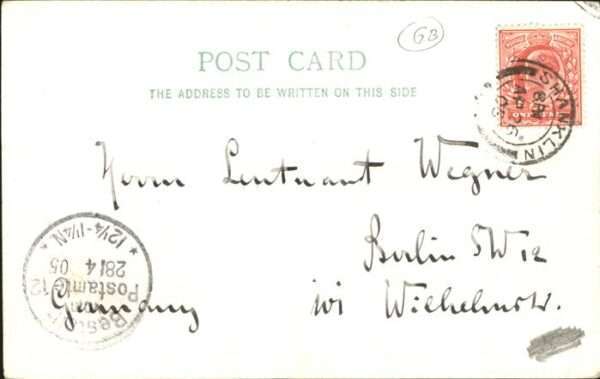 GB
POST CARD
THE ADDRESS TO BE WRITTEN ON THIS SIDE
SHANKLIN
AP 26
05
ONE PENNY
Herrn Leutnant Wegner
Berlin SW 12
101 Wilhelmstr.
Germany
Bestellt
Postamte 12
28/4 05
* 12¼-1¼N *